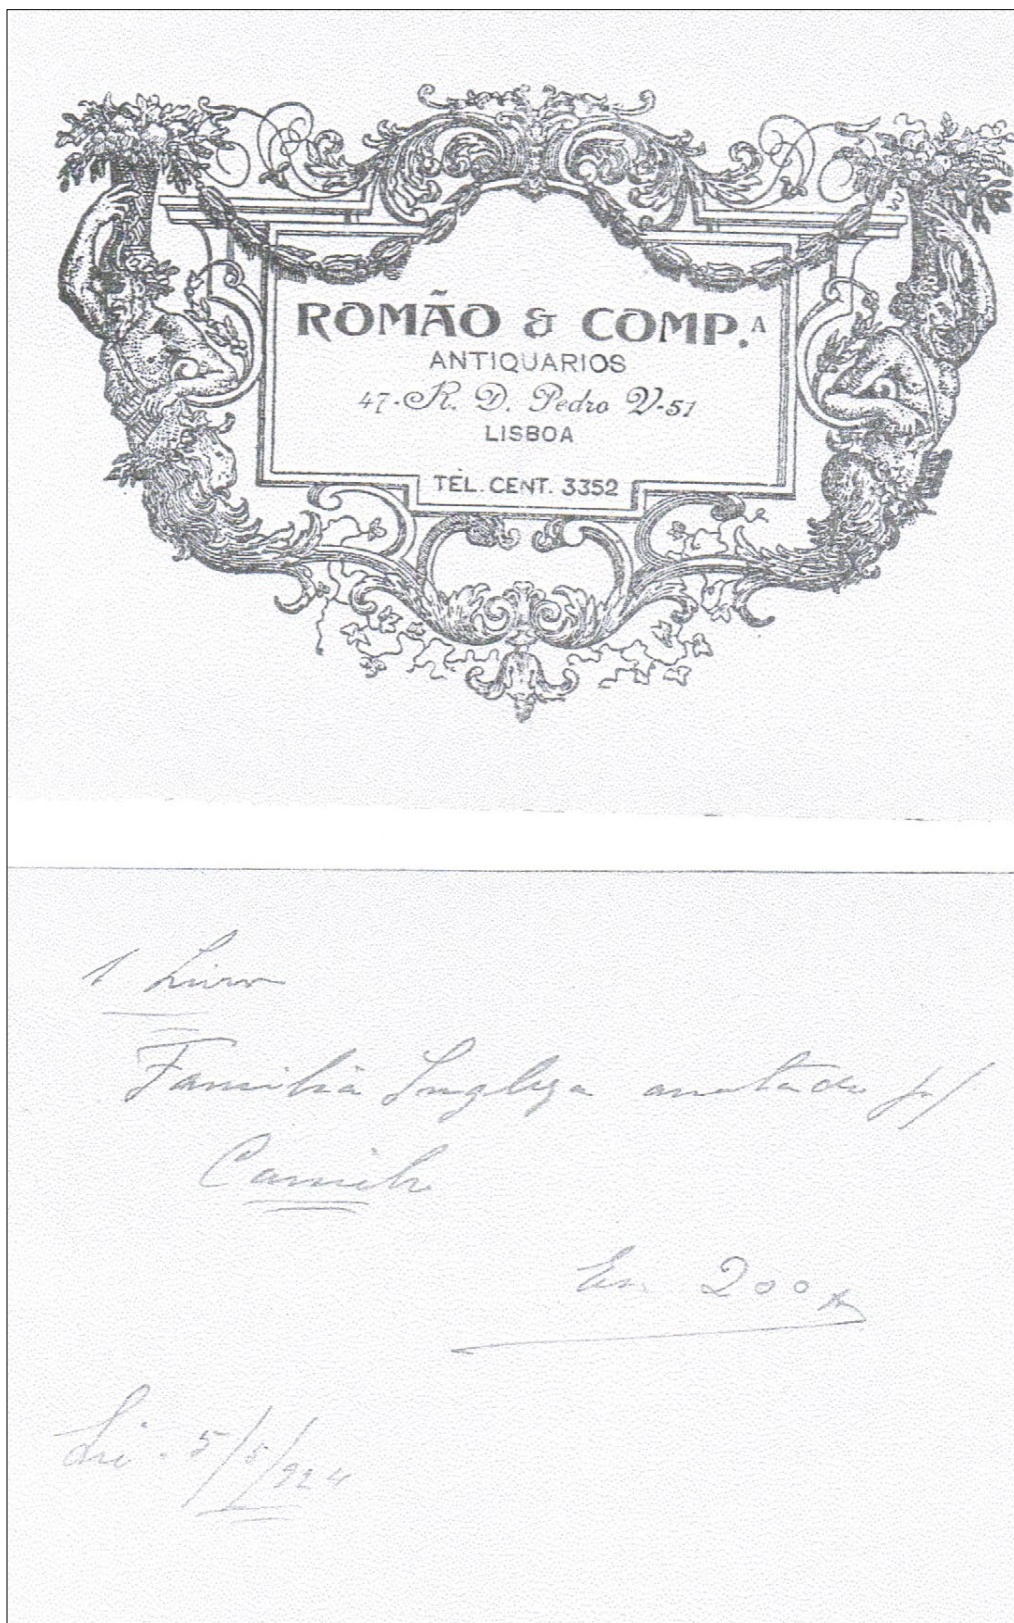 ROMÃO & COMP.A
ANTIQUARIOS
47-R. D. Pedro V-51
LISBOA
TEL. CENT. 3352
1 Livro
Familia Ingleza anotado p/
Camilo
200
5/5/924